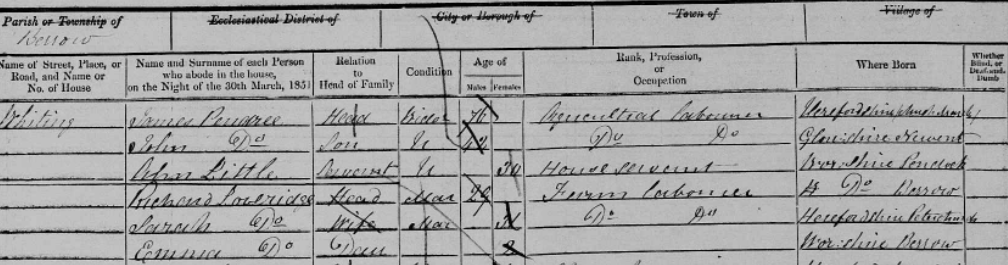 Parish or Township of Ecclesiastical District of City or Borough of Town of Village of
Berrow
Name of Street, Place, or Road, and Name or No. of House
Name and Surname of each Person who abode in the house, on the Night of the 30th March, 1851
Relation to Head of Family
Condition
Age of
Males Females
Rank, Profession, or Occupation
Where Born
Whether Blind, or Deaf-and-Dumb
Whiting James Head 76 Agricultral Labourer Herefordshire
John Do Son U 44 Do Do Glou:shire Newent
Ann Little Servent U 30 House Servent Wor:shire Pendock
Richard Loveridge Head Mar 29 Farm Labourer Do Berrow
Sarah Do Wife Mar Do Do Herefordshire
Emma Do Dau 2 Wor:shire Berrow